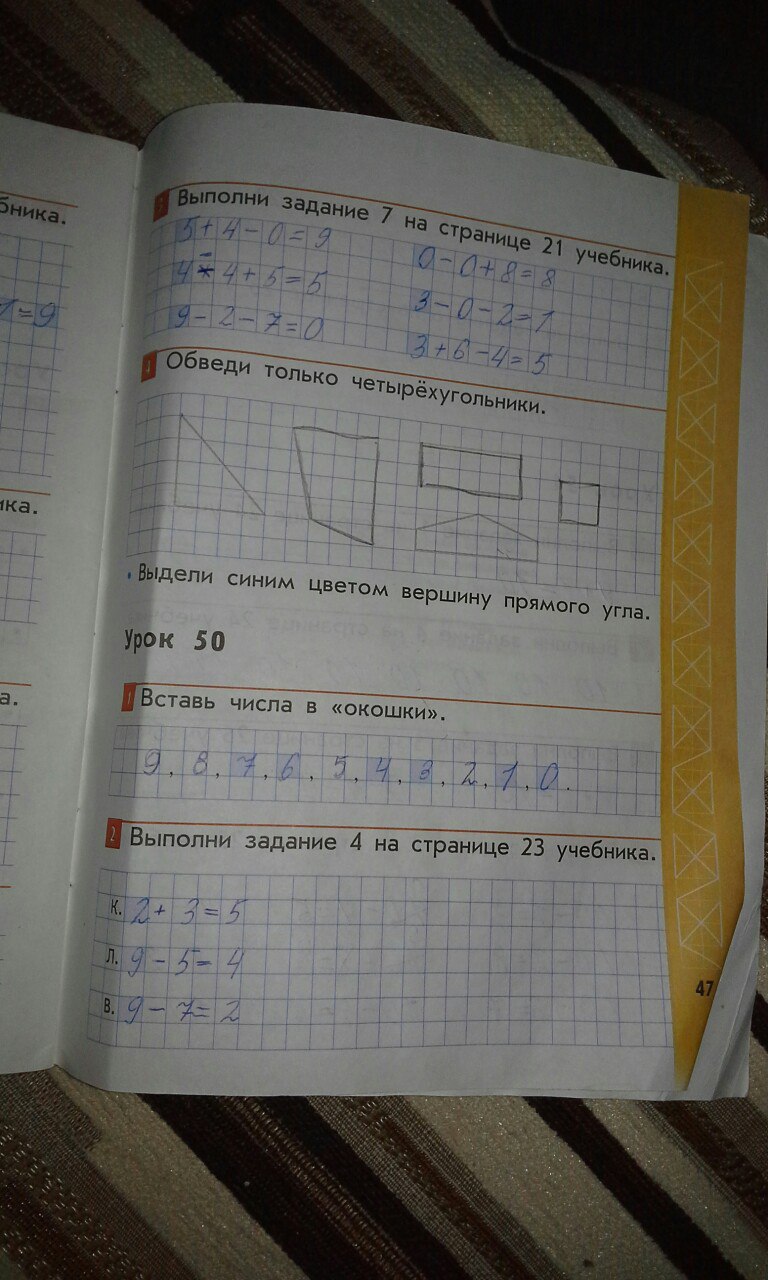 бника.
1=9
ика.
а.
3 Выполни задание 7 на странице 21 учебника.
5+4-0=9 0-0+8=8
4-4+5=5 3-0-2=1
9-2-7=0 3+6-4=5
4 Обведи только четырёхугольники.
• Выдели синим цветом вершину прямого угла.
Урок 50
1 Вставь числа в «окошки».
9, 8, 7, 6, 5, 4, 3, 2, 1, 0.
2 Выполни задание 4 на странице 23 учебника.
К. 2+3=5
Л. 9-5=4
В. 9-7=2
47